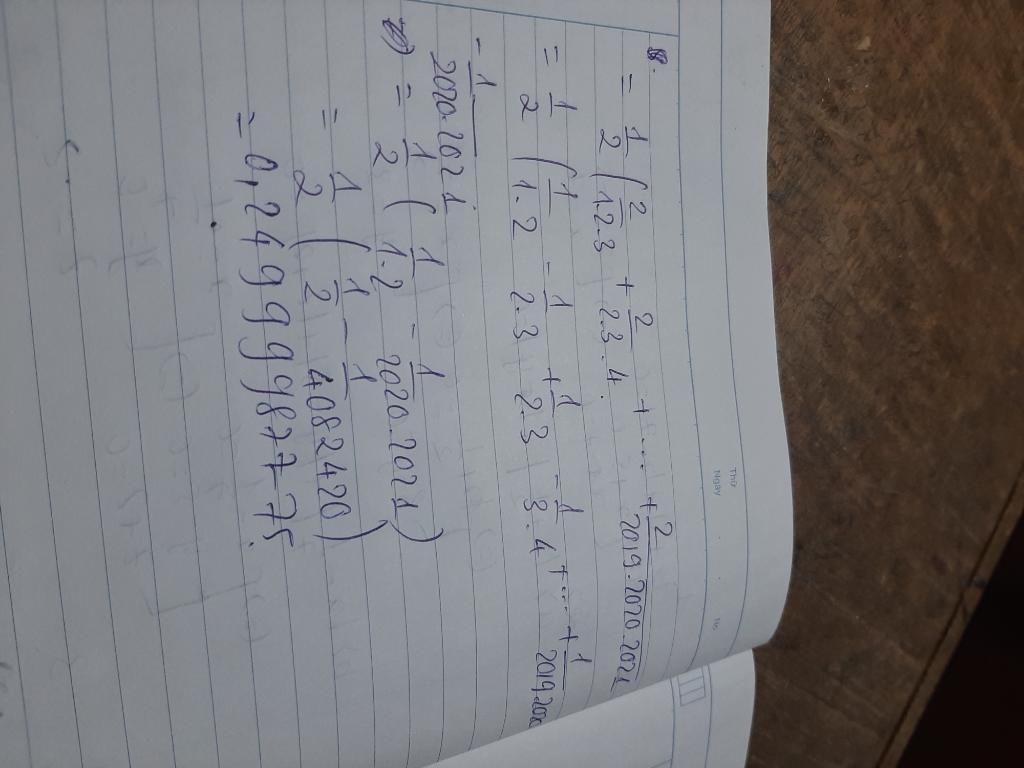 Thứ
Ngày No
= 1/2 (2/1.2.3 + 2/2.3.4 + .... + 2/2019.2020.2021
= 1/2 (1/1.2 - 1/2.3 + 1/2.3 - 1/3.4 + ... + 1/2019.2020
- 1/2020.2021
= 1/2 (1/1.2 - 1/2020.2021)
= 1/2 (1/2 - 1/4082420)
= 0,2499998775